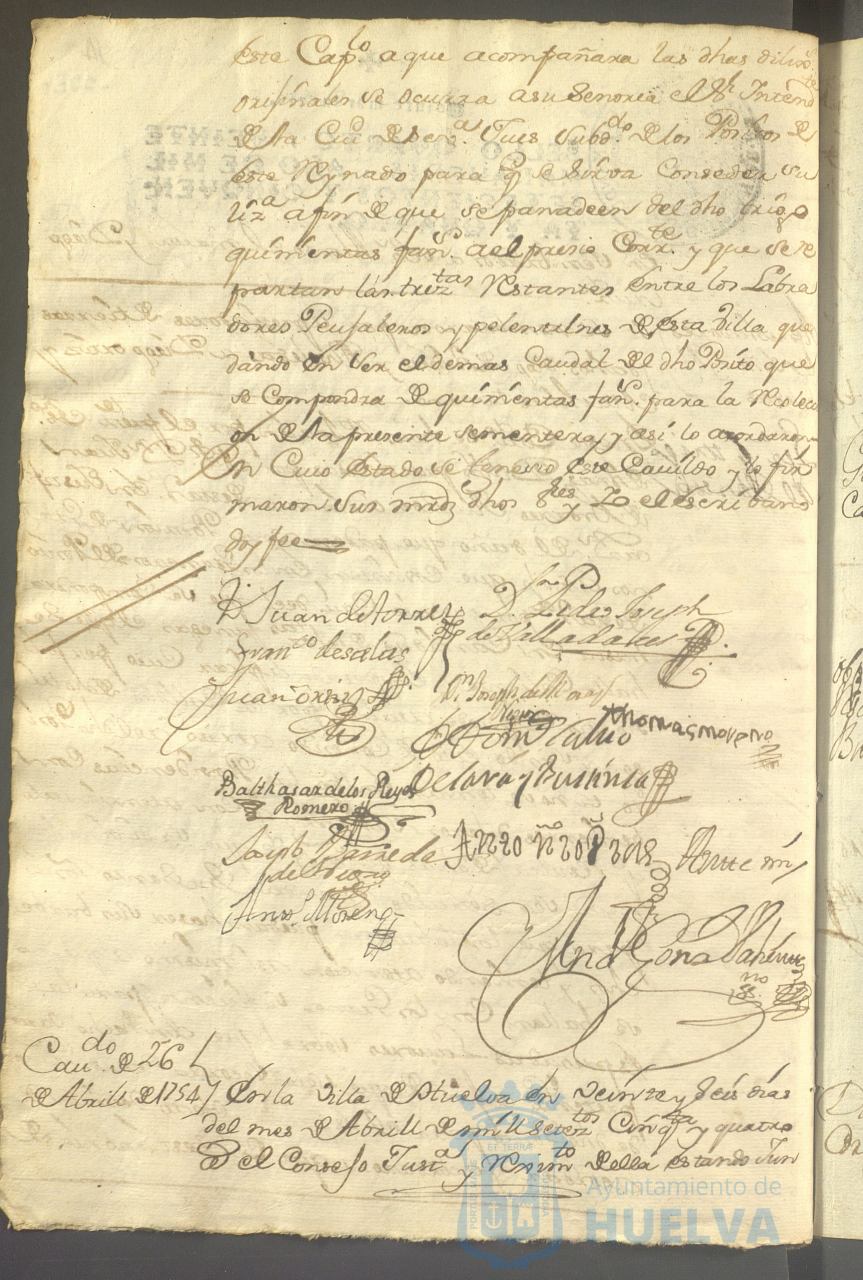 este Cap.lo a que acompañara las dhas dilix.s
orixinales se ocurra a su Senoria el Sr. Intend.te
de la Ciud de Sev.a Jues subd.do de los Positos de
este Reynado para q se sirva Conseder su
liz.a a fin de que se panadeen del dho trigo
quinientas fan.s a el presio Corr.te y que se re
partan las trez.tas Restantes entre los Labra
dores Peujaleros y pelentrines de esta Villa que
dando en ser el demas Caudal de dho Posito que
se Compondra de quinientas fan.s para la Recolec
on de la presente sementera, y asi lo acordaron
En Cuio estado se fenecio este Cavildo y lo fir
maron sus mrds dhos Sres y Yo el escribano
doy fee
D. Juan de torres
D. Pedro Joseph
de Valladares
Fran.co de selas
Juan
Dn. Joseph de
thomas moreno
Balthasar de los Reyes
Romero
Joseph Barreda
Antte mi
Ant.o Moreno
Cau.do de 26
de Abrill de 1754
En la villa de Huelva en veinte y seis dias
del mes de Abrill de mill setez.tos Cinq.ta y quatro
El Consejo Just.a y Rexim.to della estando Jun
Ayuntamiento de
HUELVA